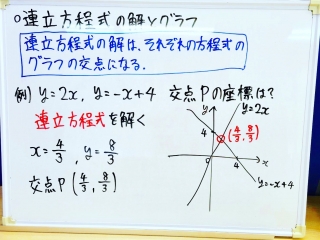 ○連立方程式の解とグラフ
連立方程式の解は、それぞれの方程式の
グラフの交点になる.
例) y=2x, y=-x+4 交点Pの座標は?
連立方程式を解く
x=4/3, y=8/3
交点P(4/3, 8/3)
y
y=2x
4
(4/3, 8/3)
0
4
x
y=-x+4